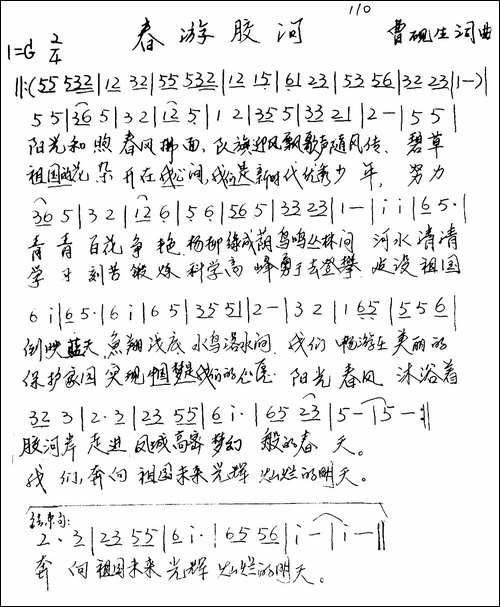 110
春游胶河
1=G 2/4
曹砚生词曲
‖:(55 532|12 32|55 532|12 15|61 23|53 56|32 23|1-)|
55|36 5|32|12 5|12|35 5|33 21|2-|55|
阳光和煦 春风拂面、队旗迎风飘歌声随风传、碧草
祖国的花朵 开在我心间,我们是新时代优秀少年, 努力
36 5|32|12 6|56|56 5|33 23|1-|i i|6 5·|
青青 百花争艳 杨柳绿成荫鸟鸣丛林间 河水清清
学习 刻苦锻炼 科学高峰勇于去登攀 建设祖国
6 i|6 5·|6 i|6 5|35 51|2-|32|1 65|55 6|
倒映蓝天 鱼翔浅底 水鸟落水间、我们 畅游在 美丽的
保护家园 实现中国梦是我们的心愿 阳光春风 沐浴着
32 3|2·3|23 55|6 i·|65 23|5-|5-:‖
胶河岸 走进 凤城高密 梦幻 般的春 天。
我们,奔向 祖国未来 光辉 灿烂的明天。
结束句:
2·3|23 55|6 i·|65 56|i-|i-‖
奔 向祖国未来 光辉 灿烂的明天。